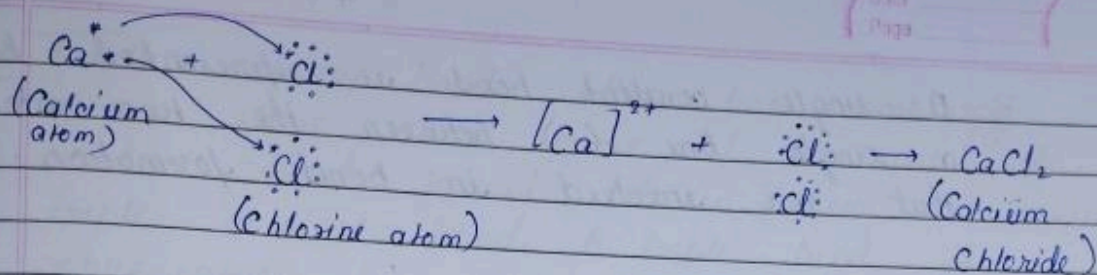 Page
Ca + Cl
(Calcium atom)
Cl
(Chlorine atom)
⟶ [Ca]²⁺ + Cl Cl ⟶ CaCl₂
(Calcium Chloride)